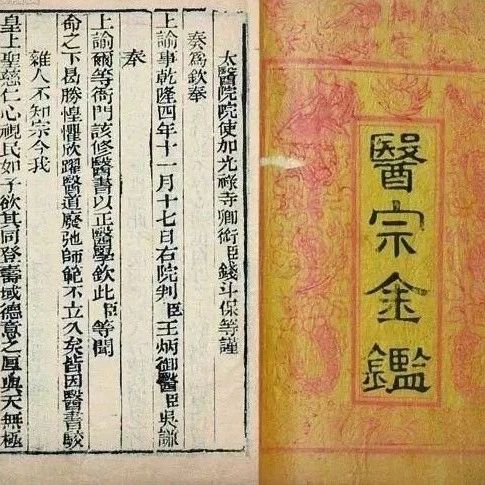 太醫院院使加光祿寺卿銜臣錢斗保等謹
奏爲欽奉
上諭事乾隆四年十一月十七日右院判臣王炳御醫臣吳謙
奉
上諭爾等衙門該修醫書以正醫學欽此臣等聞
命之下曷勝惶懼欣躍醫道廢弛師範不立久矣皆因醫書駁
雜人不知宗今我
皇上聖慈仁心視民如子欲其同登壽域德意之厚與天無極
醫宗金鑑